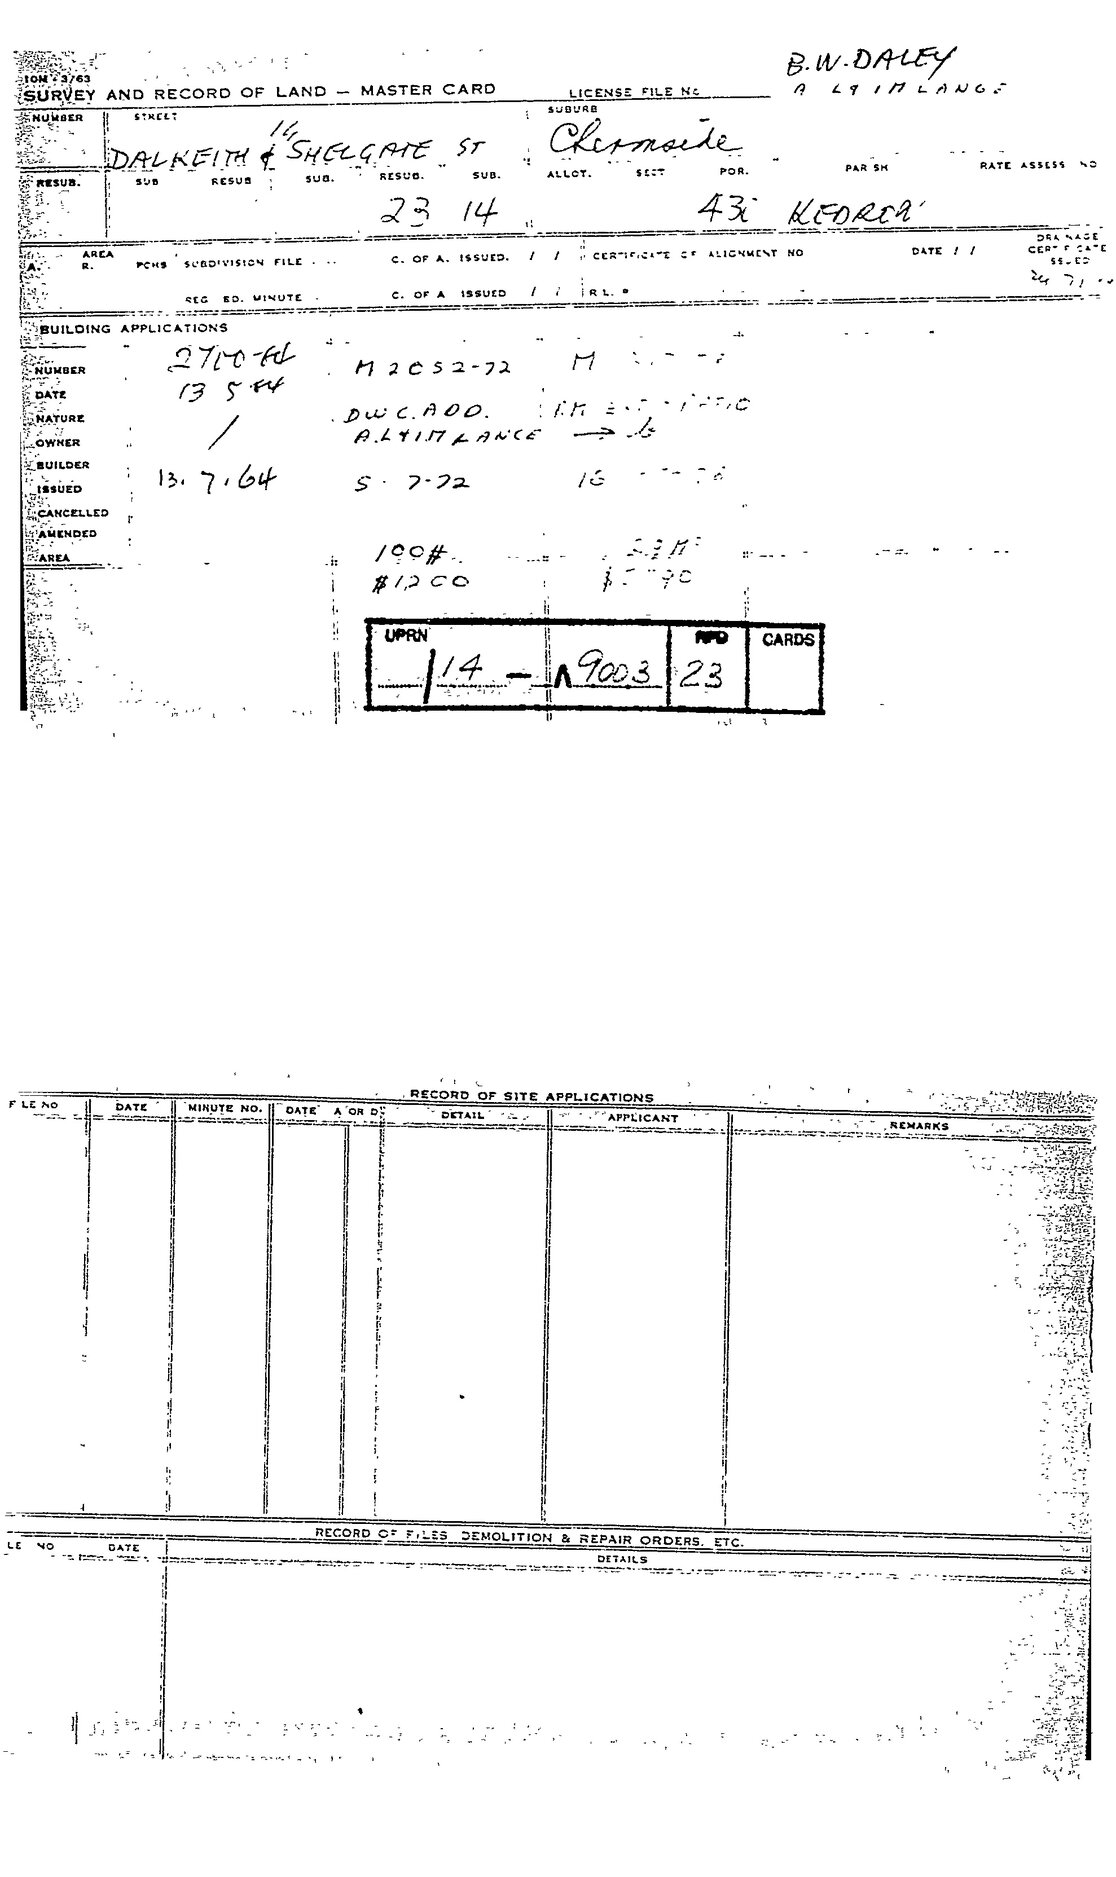 B.W. DALEY
10M - 3/63
SURVEY AND RECORD OF LAND — MASTER CARD LICENSE FILE No
A L & I M LANGE
NUMBER STREET SUBURB
14
DALKEITH & SHELGATE ST Chermside
RESUB. SUB RESUB SUB. RESUB. SUB. ALLOT. SECT POR. PARISH RATE ASSESS NO
23 14 43i
AREA
A. R. PCHS SUBDIVISION FILE C. OF A. ISSUED. / / CERTIFICATE OF ALIGNMENT NO DATE / / DRAINAGE CERTIFICATE ISSUED
REG BD. MINUTE C. OF A ISSUED / / R L.
BUILDING APPLICATIONS
NUMBER 2700-64 M2052-72 M
DATE 13 5 64
NATURE DWG. ADD.
OWNER A.L & I M LANGE →
BUILDER
ISSUED 13. 7. 64 5-7-72 16
CANCELLED
AMENDED
AREA 100#
$1200
UPRN RPD CARDS
/14 - ∧9003 23
RECORD OF SITE APPLICATIONS
FILE NO DATE MINUTE NO. DATE A OR D. DETAIL APPLICANT REMARKS
RECORD OF FILES DEMOLITION & REPAIR ORDERS, ETC.
LE NO DATE DETAILS